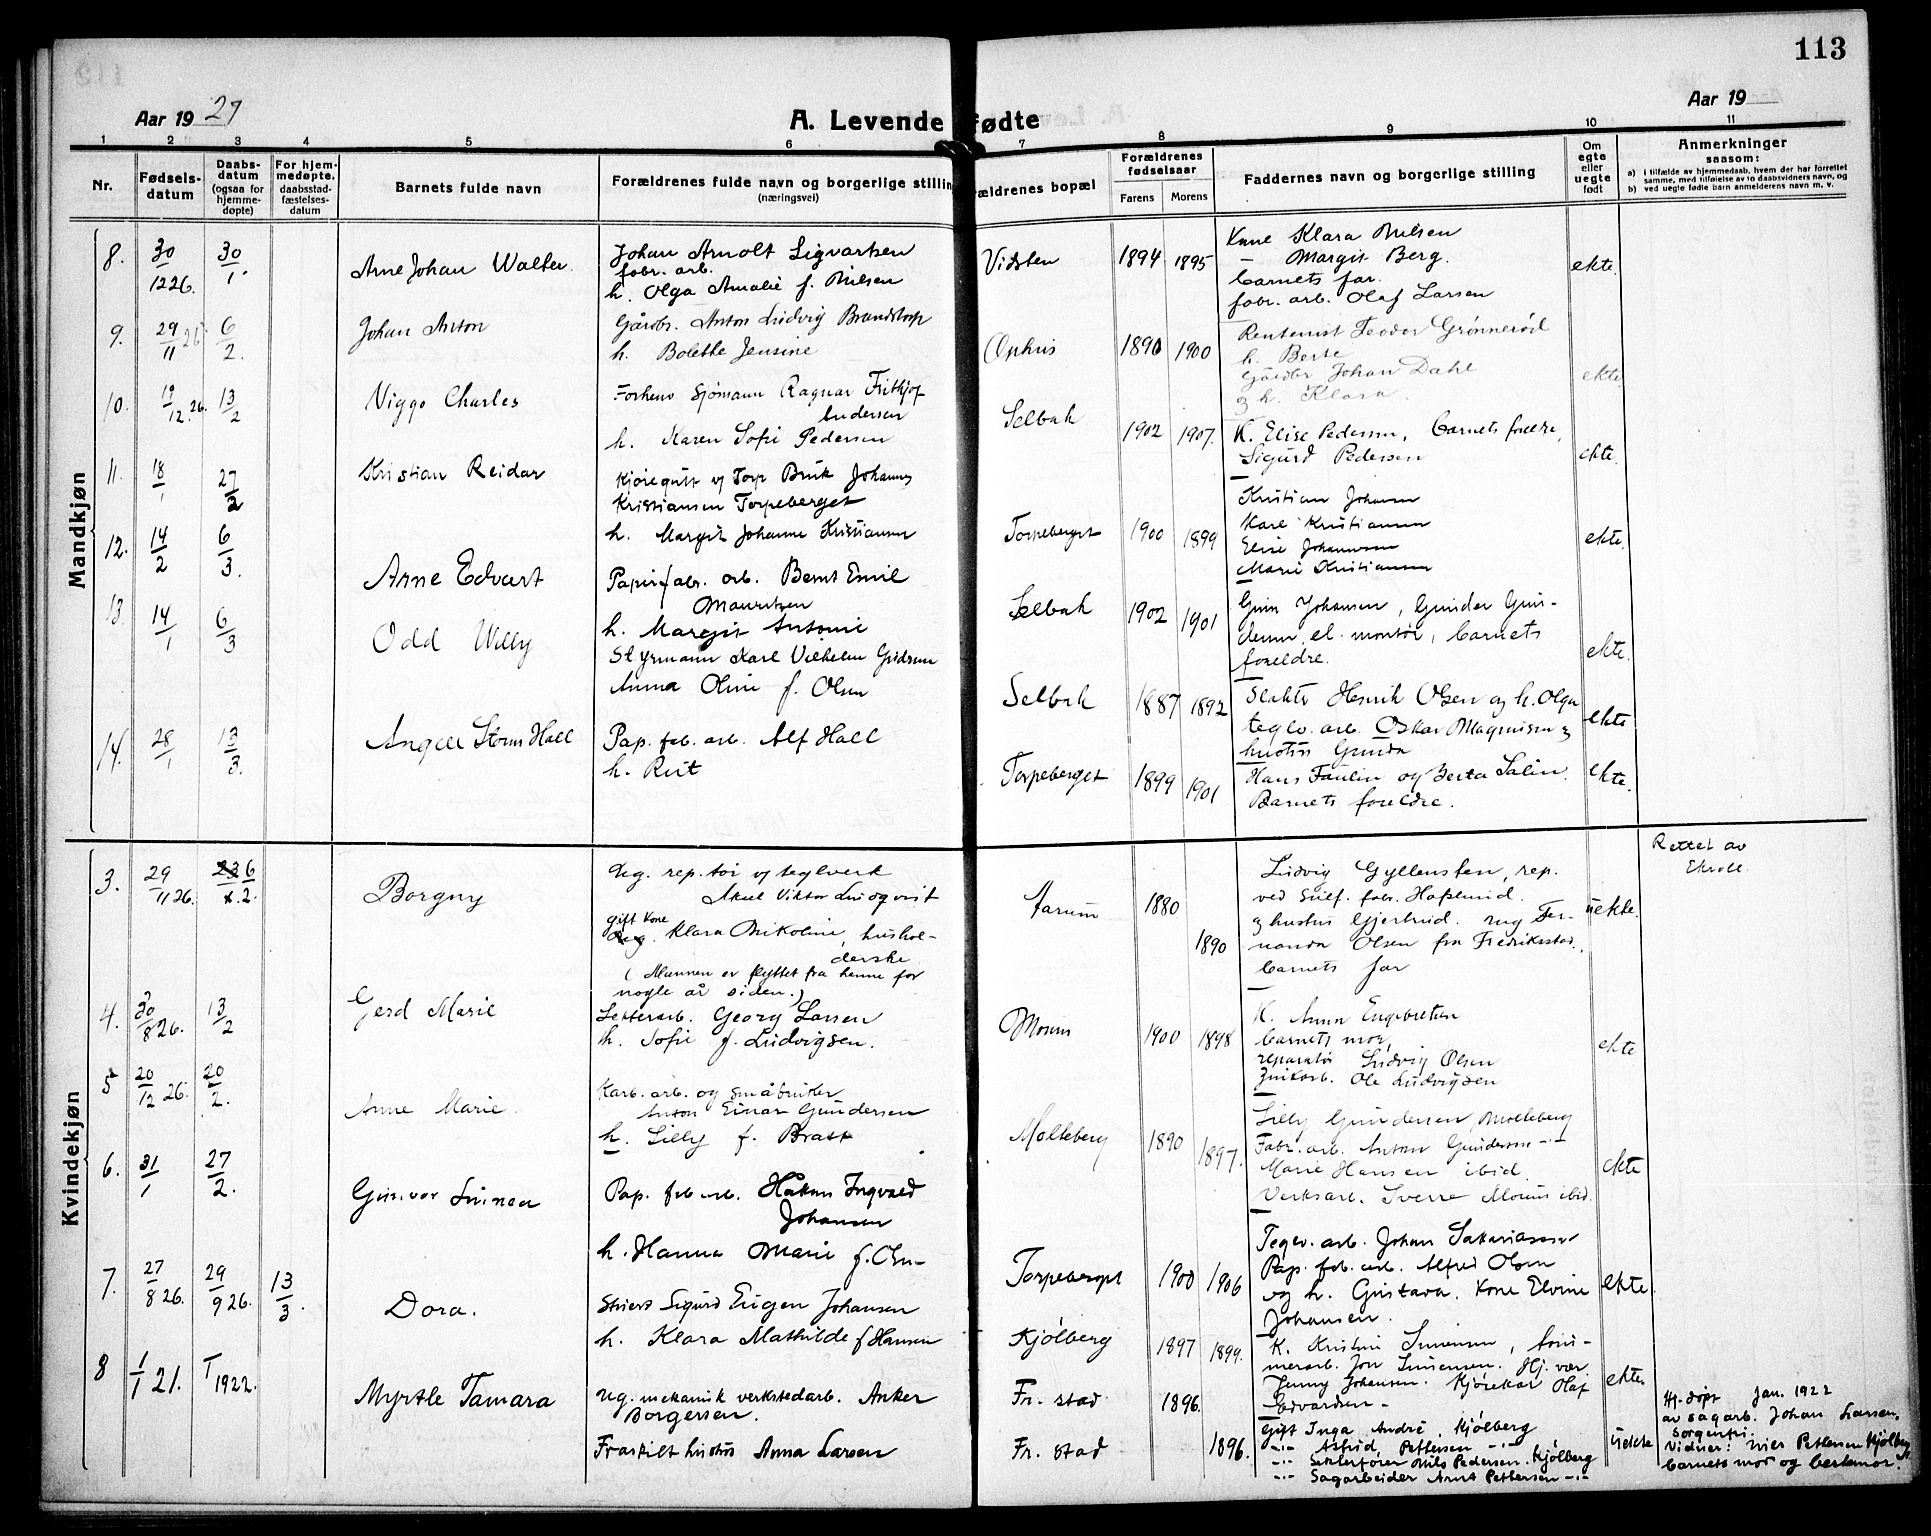 113
Aar 19 27
Aar 19
A. Levende fødte
1 2 3 4 5 6 7 8 9 10 11
Nr.
Fødsels-
datum
Daabs-
datum
(ogsaa for
hjemme-
døpte)
For hjem-
medøpte,
daabsstad-
fæstelses-
datum
Barnets fulde navn
Forældrenes fulde navn og borgerlige stilling
(næringsvei)
ældrenes bopæl
Forældrenes
fødselsaar
Farens Morens
Faddernes navn og borgerlige stilling
Om
egte
eller
uegte
født
Anmerkninger
saasom:
a) i tilfælde av hjemmedaab, hvem der har forrettet
samme, med tilføielse av to daabsvidners navn, og
b) ved uegte fødte barn anmelderens navn m. v.
Mandkjøn
8. 30/12 26. 30/1. Arne Johan Walter
Johan Arnolt Sigvartsen
fabr. arb.
h. Olga Amalie f. Nielsen
Vidsten 1894 1895
Kone Klara Nielsen
— Margit Berg.
barnets far.
fabr. arb. Olaf Larsen
ekte.
9. 29/11 26 6/2. Johan Anton
Gårdbr. Anton Ludvig Brandstorp
h. Bolette Jensine
Ophus 1890 1900
Rentenist Teodor Grønnerød
h. Berte
Gårdbr Johan Dahl
og h. Klara.
ekte
10. 19/12 26. 13/2 Viggo Charles
Forhenv sjømann Ragnar Frithjof
Andersen
h. Karen Sofie Pedersen
Selbak 1902 1907.
K. Elise Pedersen, barnets foreldre,
Sigurd Pedersen
ekte.
11. 18/1 27/2 Kristian Reidar
Kjøregutt v/ Torp Bruk Johannes
Kristiansen Torpeberget
h. Margit Johanne Kristiansen
Torpeberget 1900 1899
Kristian Johansen
Karl Kristiansen
Elise Johannesen
Marie Kristiansen
ekte.
12. 14/2 6/3. Arne Edvart
Papirfabr. arb. Bernt Emil
Mauritzen
h. Margit Antonie
Selbak 1902 1901
Johansen, Gunder Gun-
dersen, el. montør, barnets
foreldre.
ekte.
13. 14/1 6/3 Odd Willy
Styrmann Karl Vilhelm
Anna Oline f. Olsen
Selbak 1887 1892
Slakter Henrik Olsen og h. Olga
teglv. arb. Oskar Magnusen og
hustru Gunda
ekte
14. 28/1 13/3. Storm Hall
Pap. fab. arb. Alf Hall
h. Rut
Torpeberget 1899 1901
Hans Paulin og Berta Salin.
Barnets foreldre.
ekte.
Kvindekjøn
3. 29/11 26. 6/2. Borgny
Ug. rep.tør v/ teglverk
Aksel Viktor Lindqvist
Gift kone
Klara Nikoline, hushol-
derske
(Mannen er flyttet fra henne for
nogle år siden.)
Aarum 1880 1890
Ludvig Gyllensten, rep.
ved Sulf. fabr. Hafslund.
og hustru Gjertrud. ug Fer-
nanda Olsen fra Fredriksstad,
barnets far
uekte.
Rettet av
4. 30/8 26. 13/2 Gerd Marie
Georg Larsen
h. Sofie f. Ludvigsen.
Moum 1900 1898
K. Anna Engebretsen
barnets mor,
reparatør Ludvig Olsen
Ole Ludvigsen
ekte
5 20/12 26. 20/2. Anne Marie.
Karb. arb. og småbruker
Anton Einar Gundersen
h. Lilly f. Bratt
Molteberg 1890 1897.
Lilly Gundersen, Molteberg
Fabr. arb. Anton Gundersen —"—
Marie Hansen ibid.
Verksarb. Sverre Moum ibid.
ekte
6. 31/1 27/2. Gunvor Linnea
Pap. fab arb. Håkon Ingvald
Johansen
h. Hanna Marie f. Olsen
Torpeberget 1900 1906
Teglv. arb. Johan Sakariassen
Pap. fab. arb. Alfred Olsen
og h. Gustava. Kone Elvine
Johansen.
ekte.
7. 27/8 26. 29/9 26. 13/3. Dora.
Sigurd Eugen Johansen
h. Klara Mathilde f Hansen
Kjølberg 1897 1899.
K. Kristine Simensen, tøm-
merarb. Jon Simensen. Hj. vær
Jenny Johansen. Kjørekar Olaf
Edvardsen –
ekte.
8 1/1 21. 1/1922. Myrtle Tamara
ug. mekanisk verkstedarb. Anker
Borgersen.
Fraskilt hustru Anna Larsen
Fr. stad 1896.
Fr. stad 1896.
Gift Inga André, Kjølberg
—"— Astrid Pettersen —"—
—"— Nils Pedersen. Kjølberg
—"— Sagarbeider Arnt Pettersen —"—
uekte
Hj. døpt Jan. 1922
av sagarb. Johan Larsen,
Sorgenfri.
Vidner: Nils Pettersen Kjølberg
barnets mor og bestemor.